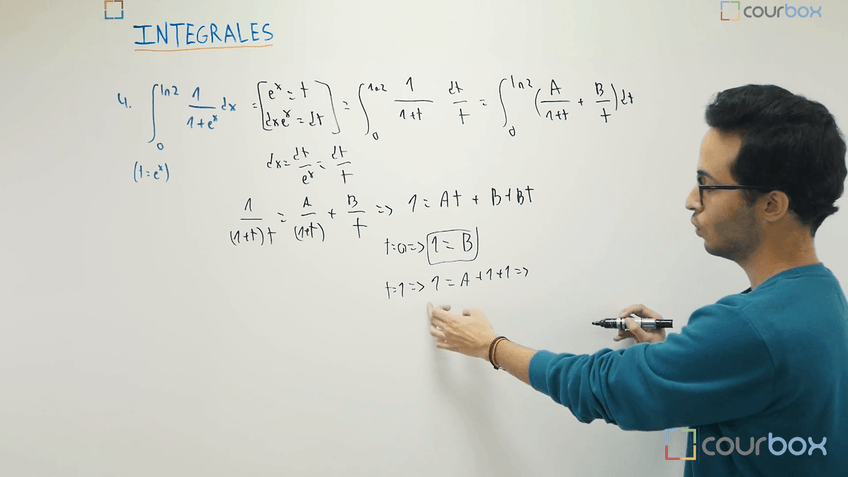 courbox
INTEGRALES
4. ∫₀^ln2 1/(1+eˣ) dx = [eˣ = t dxeˣ = dt] = ∫₀^ln2 1/(1+t) dt/t = ∫₀^ln2 (A/(1+t) + B/t) dt
(t=eˣ)
dx = dt/eˣ = dt/t
1/((1+t)t) = A/(1+t) + B/t => 1 = At + B+Bt
t=0 => 1 = B
t=1 => 1 = A +1+1 =>
courbox